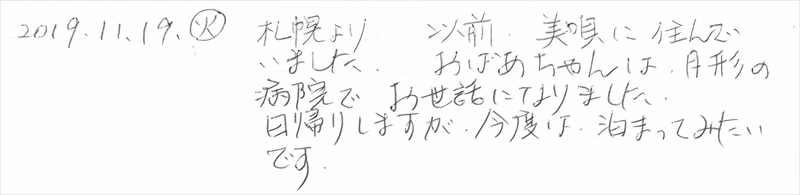 2019.11.19.㊋ 札幌より 以前.美唄に住んで
いました. おばあちゃんは.月形の
病院で お世話になりました.
日帰りしますが.今度は.泊まってみたい
です.